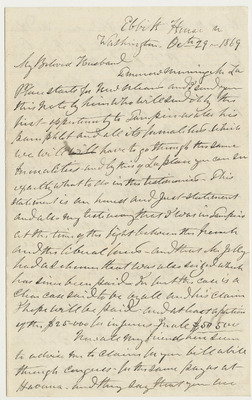 Ebbitt House
Washington. Oct 29 - 1869
My Beloved Husband
morning Mr. La
Plain starts for New Orleans and I send you
this note by him who will send it by the
first opportunity to Tampico as to his
pamphlet and all its formalities which
we will have to go through the same
formalities and by this of La Plain you can see
exactly what to do in the testimonies. This
statement is an honest and just statement
and also my testimony that I was in Tampico
at the time of the fight between the French
and the liberal forces - and that Mr Jolly
had a schooner that was also seized which
has since been paid. In truth the case is a
clear case said to be by all and his claim
I hope will be paid - and at least a portion
of the $25-000 for injuries in all $50-500
Now also my friends here seem
to advise me to claim for you all
through congress - for the same pay as at
Havana - and they say that you are